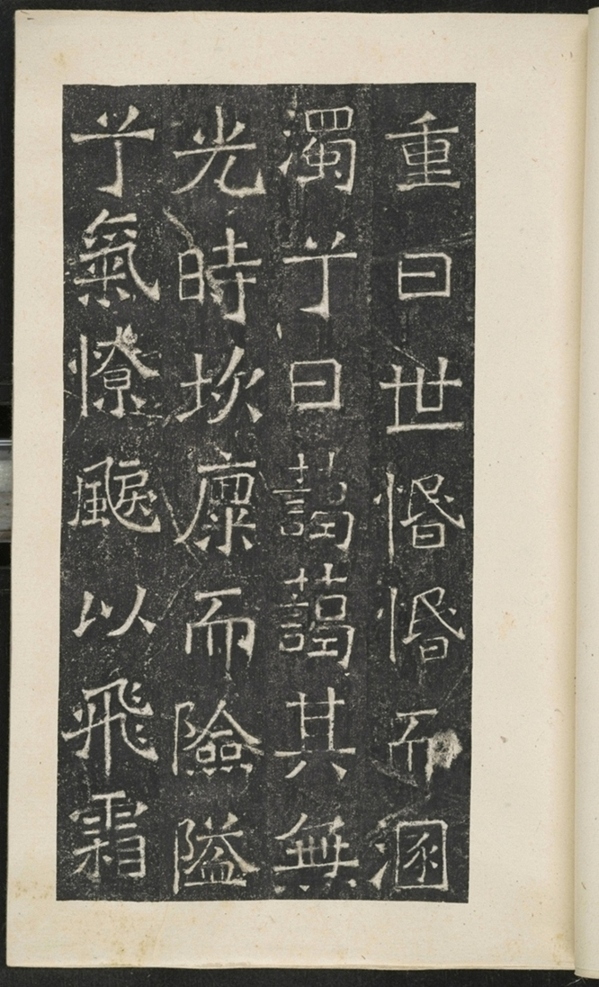 重曰世惛惛而溷
濁兮曰藹藹其無
光時坎廩而險隘
兮氣憭以飛霜